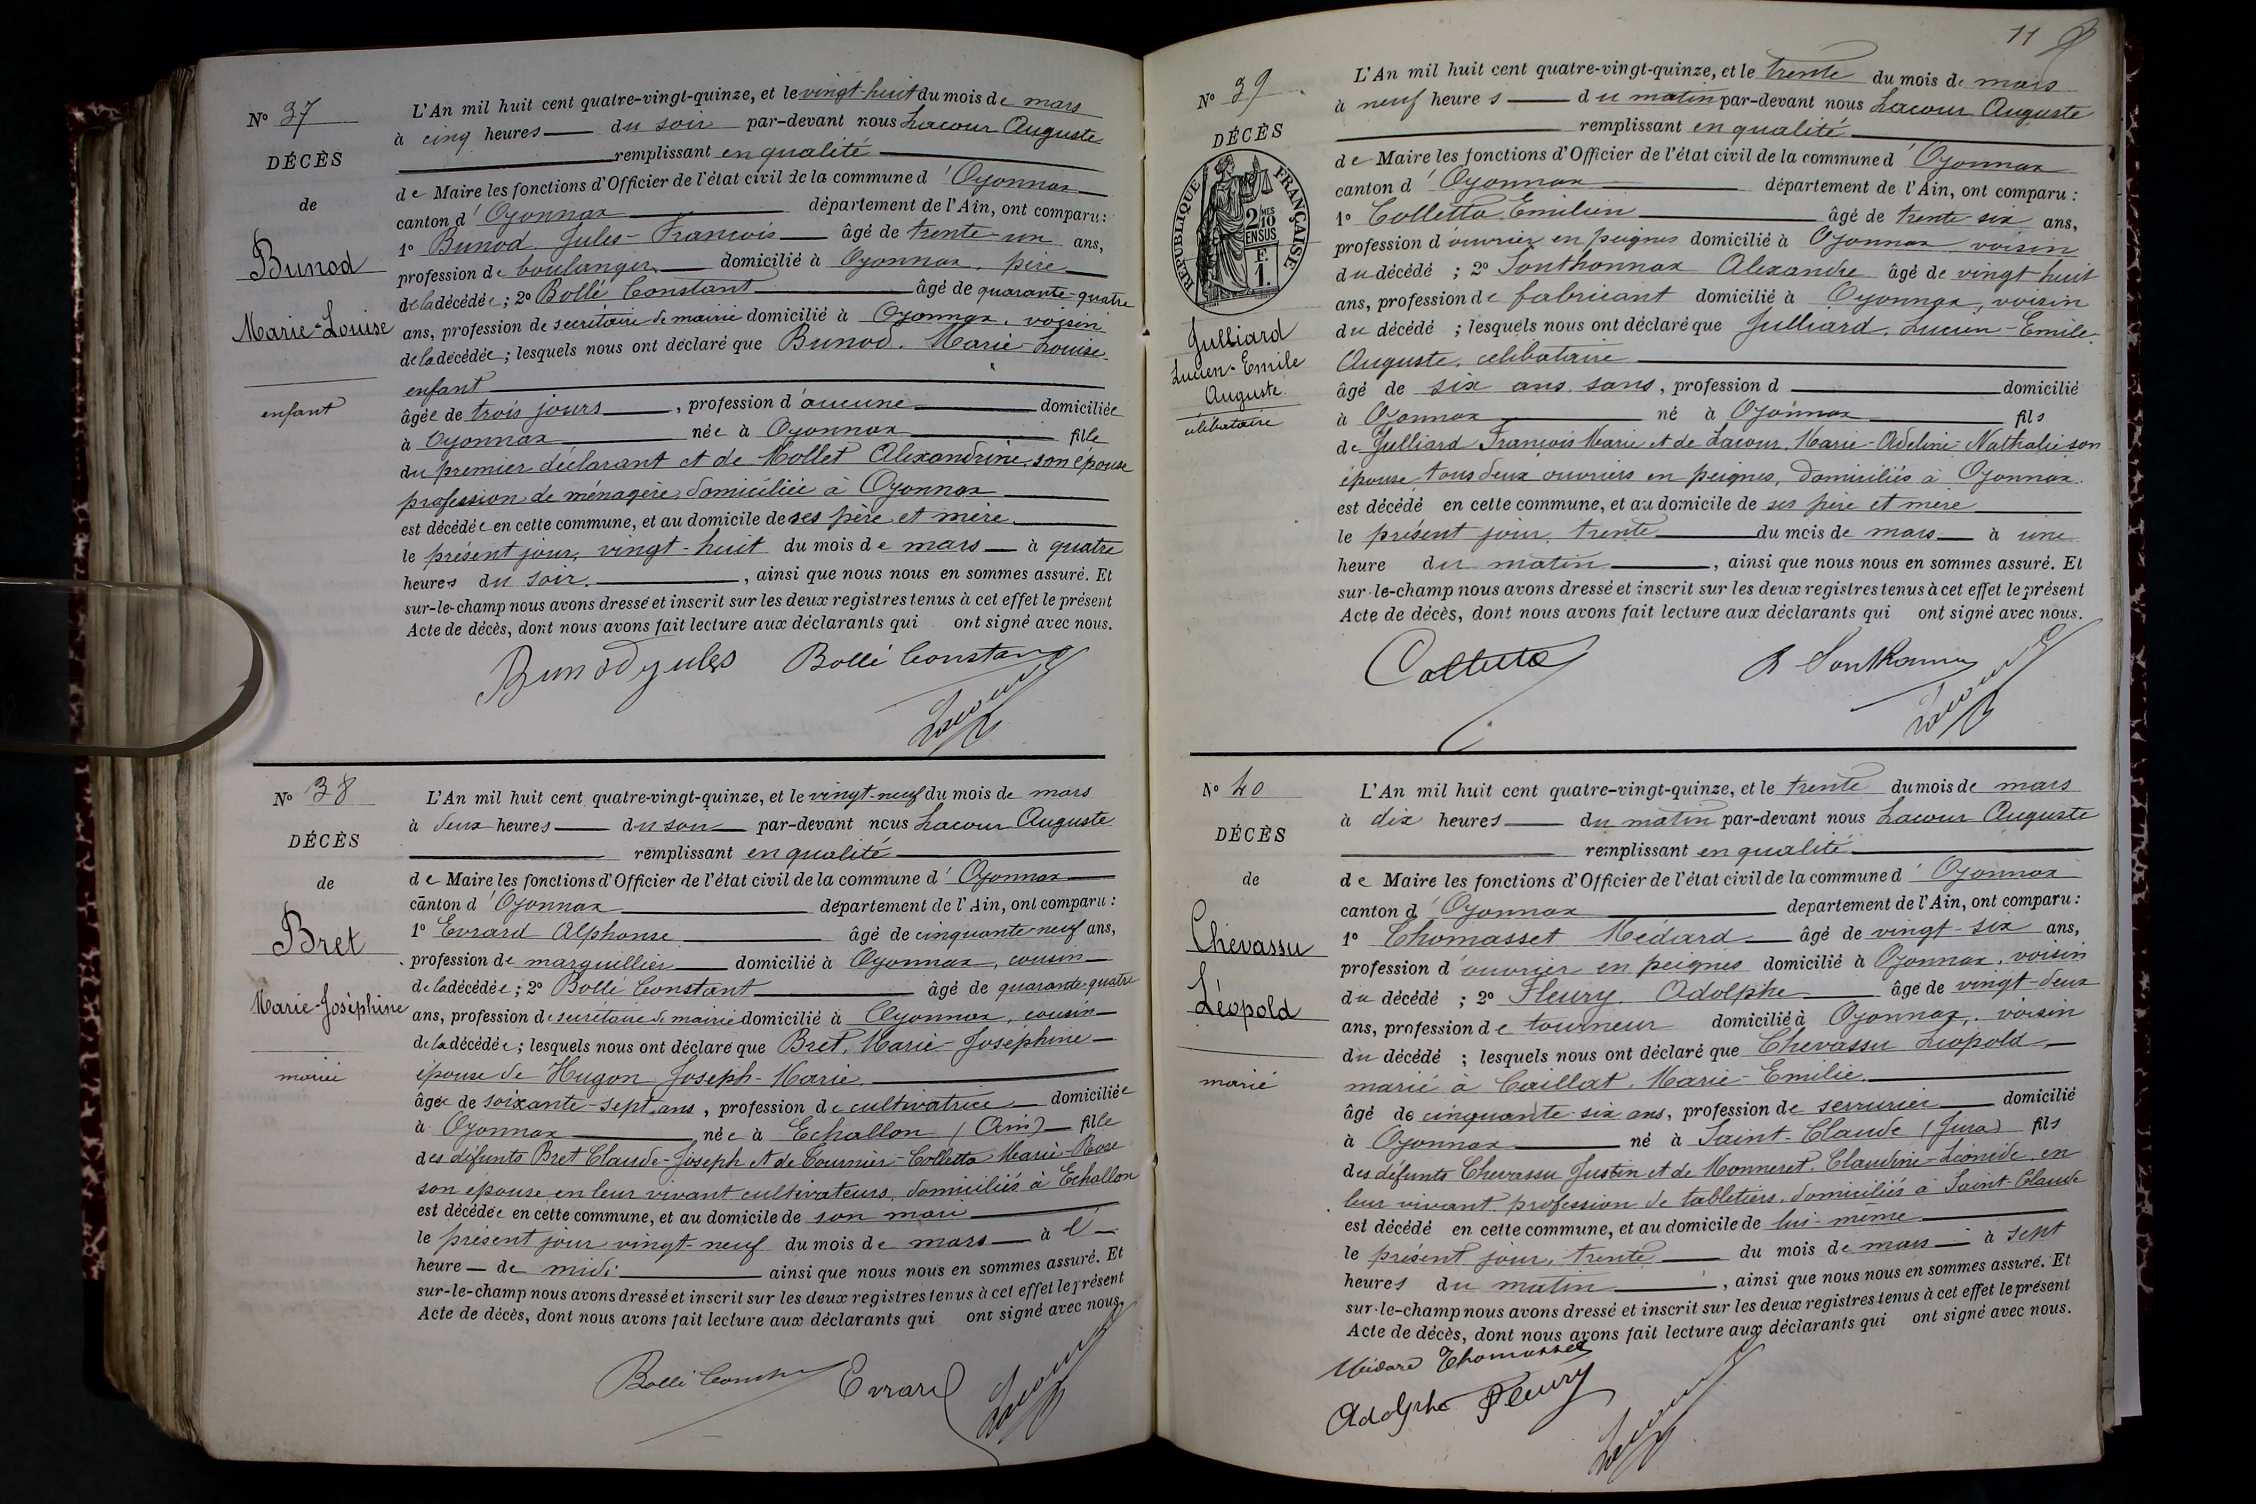 Nº 37
DÉCÈS
de
Bunod
Marie-Louise
enfant
L'An mil huit cent quatre-vingt-quinze, et le vingt-huit du mois de mars
à cinq heures du soir par-devant nous Lacour Auguste
remplissant en qualité
de Maire les fonctions d'Officier de l'état civil de la commune d'Oyonnax
canton d'Oyonnax département de l'Ain, ont comparu :
1º Bunod Jules-François âgé de trente-un ans,
profession de boulanger, domicilié à Oyonnax, père
de la décédée ; 2º Bollé Constant âgé de quarante-quatre
ans, profession de secrétaire de mairie domicilié à Oyonnax, voisin
de la décédée ; lesquels nous ont déclaré que Bunod, Marie-Louise
enfant
âgée de trois jours, profession d'aucune domiciliée
à Oyonnax née à Oyonnax fille
du premier déclarant et de Mollet Alexandrine, son épouse
profession de ménagère, domiciliée à Oyonnax
est décédée en cette commune, et au domicile de ses père et mère
le présent jour, vingt-huit du mois de mars à quatre
heures du soir, ainsi que nous nous en sommes assuré. Et
sur-le-champ nous avons dressé et inscrit sur les deux registres tenus à cet effet le présent
Acte de décès, dont nous avons fait lecture aux déclarants qui ont signé avec nous.
Bunod jules Bollé Constant
Lacour
Nº 38
DÉCÈS
de
Bret
Marie-Joséphine
mariée
L'An mil huit cent quatre-vingt-quinze, et le vingt-neuf du mois de mars
à deux heures du soir par-devant nous Lacour Auguste
remplissant en qualité
de Maire les fonctions d'Officier de l'état civil de la commune d'Oyonnax
canton d'Oyonnax département de l'Ain, ont comparu :
1º Evrard Alphonse âgé de cinquante-neuf ans,
profession de marguellier domicilié à Oyonnax, cousin
de la décédée ; 2º Bollé Constant âgé de quarante-quatre
ans, profession de secrétaire de mairie domicilié à Oyonnax, cousin
de la décédée ; lesquels nous ont déclaré que Bret, Marie-Joséphine
épouse de Hugon Joseph-Marie
âgée de soixante-sept ans, profession de cultivatrice domiciliée
à Oyonnax née à Echallon (Ain) fille
des défunts Bret Claude-Joseph et de Tournier-Colletta Marie-Rose
son épouse, en leur vivant cultivateurs, domiciliés à Echallon
est décédée en cette commune, et au domicile de son mari
le présent jour vingt-neuf du mois de mars à l'
heure de midi ainsi que nous nous en sommes assuré. Et
sur-le-champ nous avons dressé et inscrit sur les deux registres tenus à cet effet le présent
Acte de décès, dont nous avons fait lecture aux déclarants qui ont signé avec nous.
Bollé Evrard Lacour
11
Nº 39
DÉCÈS
RÉPUBLIQUE FRANÇAISE
2/10 MES
EN SUS
F.
1.
Julliard
Lucien-Emile
Auguste
célibataire
L'An mil huit cent quatre-vingt-quinze, et le trente du mois de mars
à neuf heures du matin par-devant nous Lacour Auguste
remplissant en qualité
de Maire les fonctions d'Officier de l'état civil de la commune d'Oyonnax
canton d'Oyonnax département de l'Ain, ont comparu :
1º Colletta Emilien âgé de trente-six ans,
profession d'ouvrier en peignes domicilié à Oyonnax voisin
du décédé ; 2º Sonthonnax Alexandre âgé de vingt huit
ans, profession de fabricant domicilié à Oyonnax, voisin
du décédé ; lesquels nous ont déclaré que Julliard, Lucien-Emile
Auguste, célibataire
âgé de six ans sans, profession d domicilié
à Oyonnax né à Oyonnax fils
de Julliard François Marie et de Lacour, Marie-Adeline Nathalie son
épouse tous deux ouvriers en peignes, domiciliés à Oyonnax.
est décédé en cette commune, et au domicile de ses père et mère
le présent jour, trente du mois de mars à une
heure du matin, ainsi que nous nous en sommes assuré. Et
sur-le-champ nous avons dressé et inscrit sur les deux registres tenus à cet effet le présent
Acte de décès, dont nous avons fait lecture aux déclarants qui ont signé avec nous.
Colletta A Sonthonnax
Lacour
Nº 40
DÉCÈS
de
Chevassu
Léopold
marié
L'An mil huit cent quatre-vingt-quinze, et le trente du mois de mars
à dix heures du matin par-devant nous Lacour Auguste
remplissant en qualité
de Maire les fonctions d'Officier de l'état civil de la commune d'Oyonnax
canton d'Oyonnax département de l'Ain, ont comparu :
1º Chomasset Médard âgé de vingt-six ans,
profession d'ouvrier en peignes domicilié à Oyonnax, voisin
du décédé ; 2º Fleury, Adolphe âgé de vingt-deux
ans, profession de tourneur domicilié à Oyonnax, voisin
du décédé ; lesquels nous ont déclaré que Chevassu Léopold
marié à Caillat, Marie-Emilie
âgé de cinquante-six ans, profession de serrurier domicilié
à Oyonnax né à Saint-Claude (Jura) fils
des défunts Chevassu Justin et de Monneret, Claudine-Léonide, en
leur vivant profession de tabletiers, domiciliés à Saint-Claude
est décédé en cette commune, et au domicile de lui-même
le présent jour, trente du mois de mars à sept
heures du matin, ainsi que nous nous en sommes assuré. Et
sur-le-champ nous avons dressé et inscrit sur les deux registres tenus à cet effet le présent
Acte de décès, dont nous avons fait lecture aux déclarants qui ont signé avec nous.
Médard Thomasset
Adolphe Fleury
Lacour